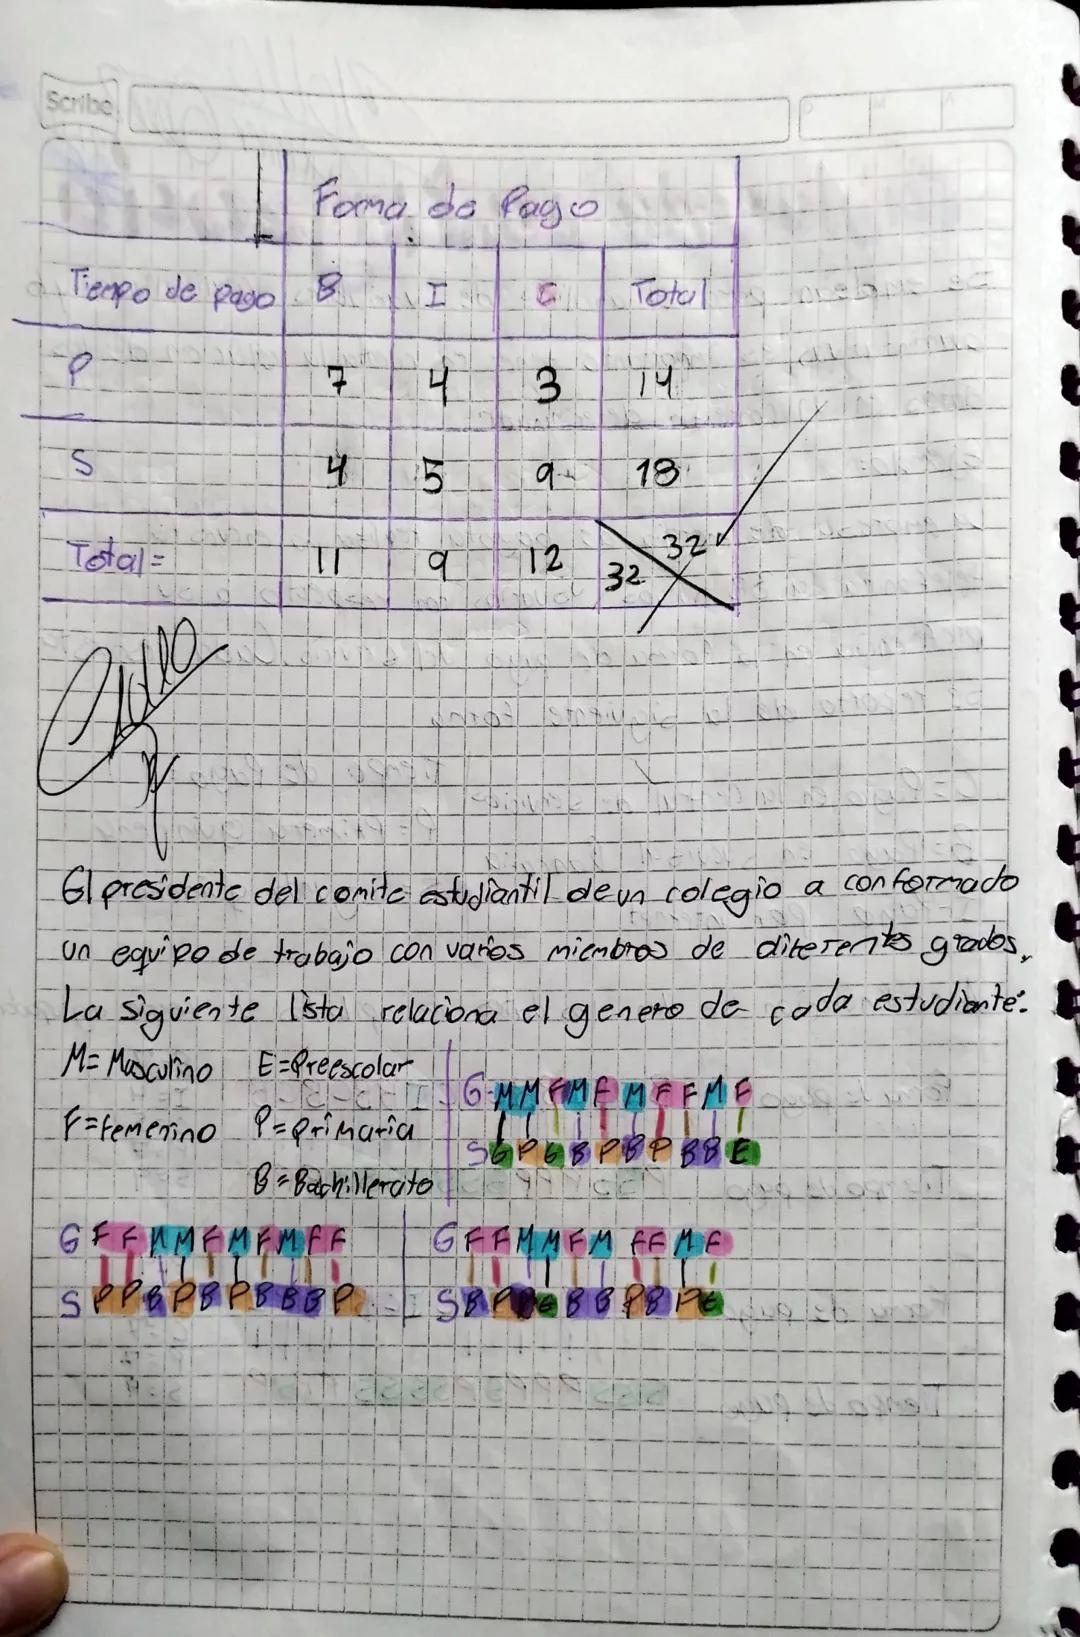 Scribe
Forma de Pago
Tiempo de pago B I C Total
P 7 4 3 14
S 4 5 9 18
Total= 11 9 12 32 32
El presidente del comite estudiantil de un colegio a conformado
un equipo de trabajo con varios miembros de diferentes grados,
La siguiente lista relaciona el genero de cada estudiante:
M= Masculino E=Preescolar
F=femenino P=primaria
B=Bachillerato
G M M F M F M F F M F
S E P E B P B P B B E
G F F M M F M F M F F
S P P B P B P B B B P
G F F M M F M F F M F
S B P E B B P B P E